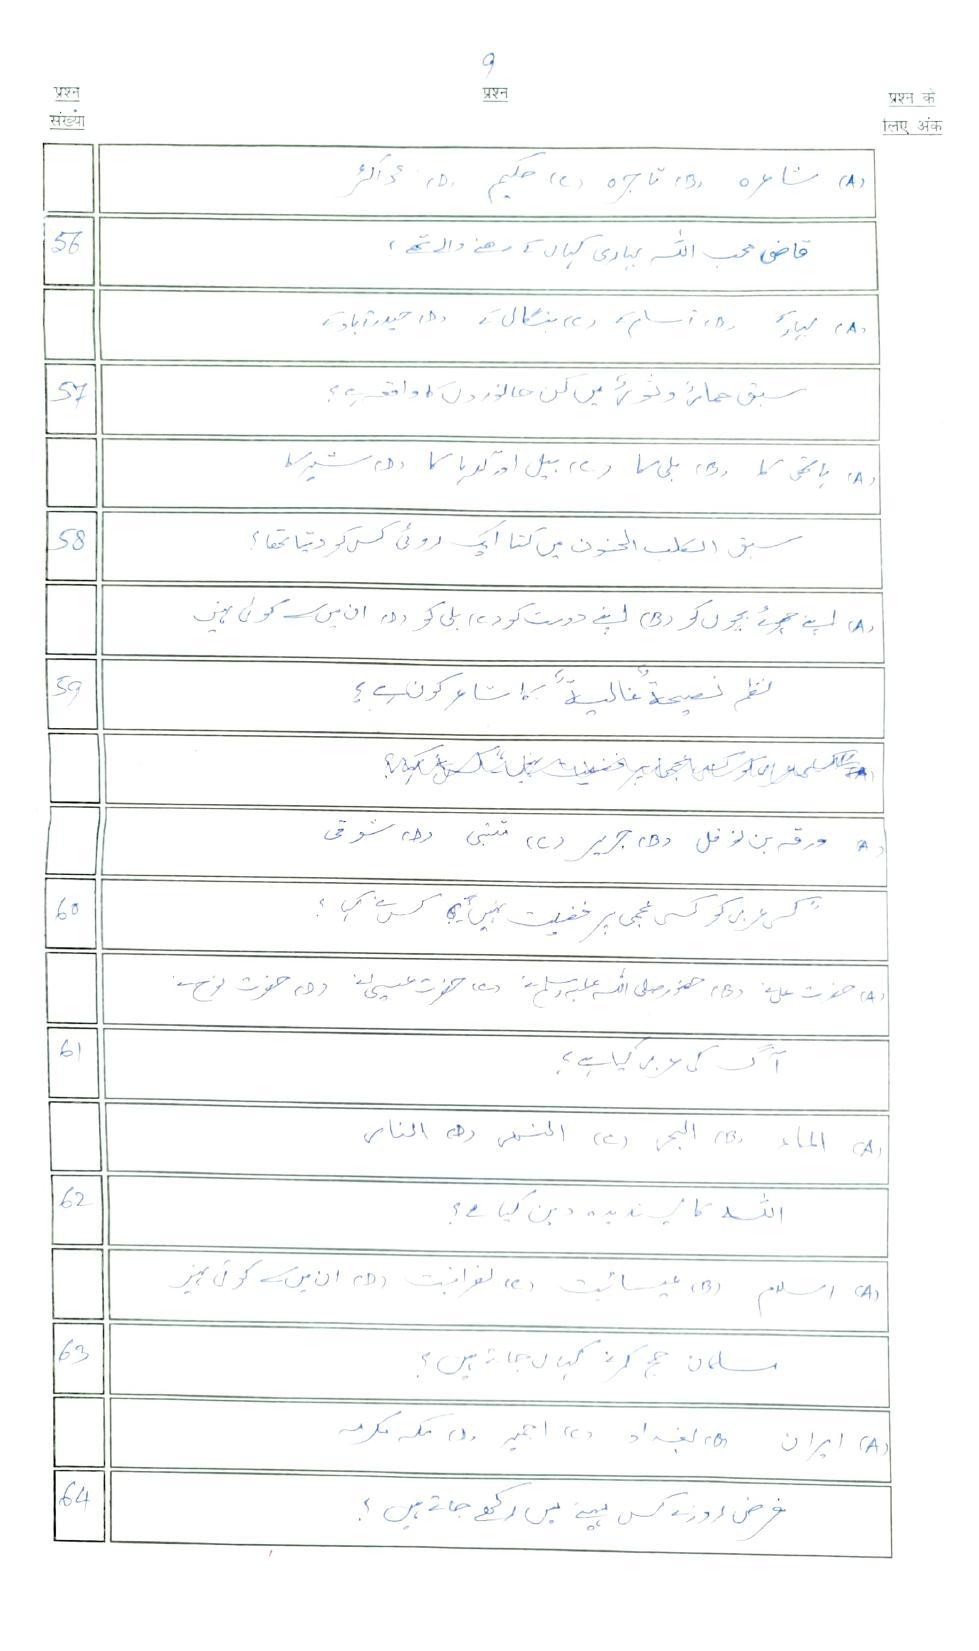 9
प्रश्न संख्या
प्रश्न
प्रश्न के लिए अंक
(A) شاعرہ (B) تاجرہ (C) حکیم (D) ڈاکٹر
56 قاضی محب اللہ بہاری کہاں کے رہنے والے تھے؟
(A) بہار کے (B) آسام کے (C) بنگال کے (D) حیدرآباد کے
57 سبق حمارٌ و ثورٌ میں کن جانوروں کا واقعہ ہے؟
(A) ہاتھی کا (B) بلی کا (C) بیل اور گدہا کا (D) شیر کا
58 سبق الکلب الحنون میں کتا ایک روٹی کس کو دیتا تھا؟
(A) اپنے چھوٹے بچوں کو (B) اپنے دوست کو (C) بلی کو (D) ان میں سے کوئی نہیں
59 نظم "نصیحة غالیة" کا شاعر کون ہے؟
(A) ورقہ بن نوفل (B) جریر (C) متنبی (D) شوقی
60 "کسی عربی کو کسی عجمی پر فضیلت نہیں" کس نے کہا؟
(A) حضرت علیؓ نے (B) حضور صلی اللہ علیہ وسلم نے (C) حضرت عیسیٰ نے (D) حضرت نوح نے
61 آگ کی عربی کیا ہے؟
(A) الماء (B) البحر (C) الشمس (D) النار
62 اللہ کا پسندیدہ دین کیا ہے؟
(A) اسلام (B) عیسائیت (C) نصرانیت (D) ان میں سے کوئی نہیں
63 مسلمان حج کرنے کہاں جاتے ہیں؟
(A) ایران (B) بغداد (C) اجمیر (D) مکہ مکرمہ
64 فرض روزے کس مہینے میں رکھے جاتے ہیں؟